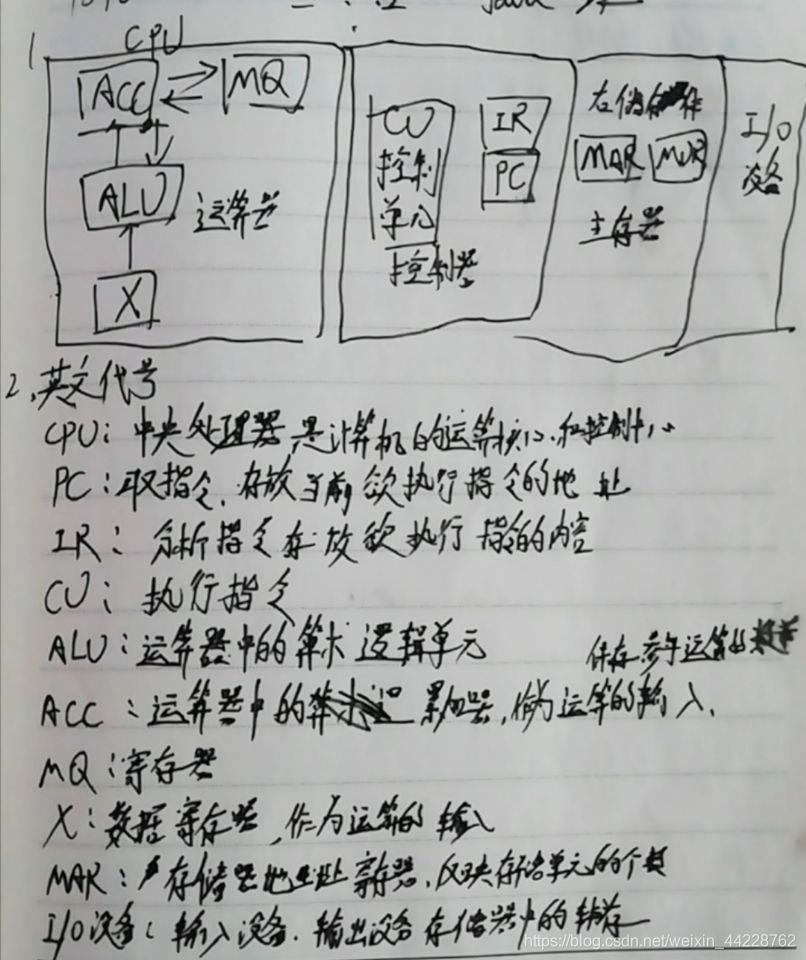 1
CPU
ACC MQ
ALU 运算器
X
CU
控制
单元
控制器
IR
PC
MAR MDR
主存器
I/O
设备
2、英文代号
CPU：中央处理器 是计算机的运算核心和控制中心
PC：取指令，存放当前欲执行指令的地址
IR：分析指令存放欲执行指令的内容
CU：执行指令
ALU：运算器中的算术逻辑单元
保存参与运算的
ACC：运算器中的 累加器，作为运算的输入、
MQ：寄存器
X：数据寄存器，作为运算的输入
MAR：存储器地址寄存器、反映存储单元的个数
I/O设备：输入设备、输出设备 存储器中的辅存
https://blog.csdn.net/weixin_44228762